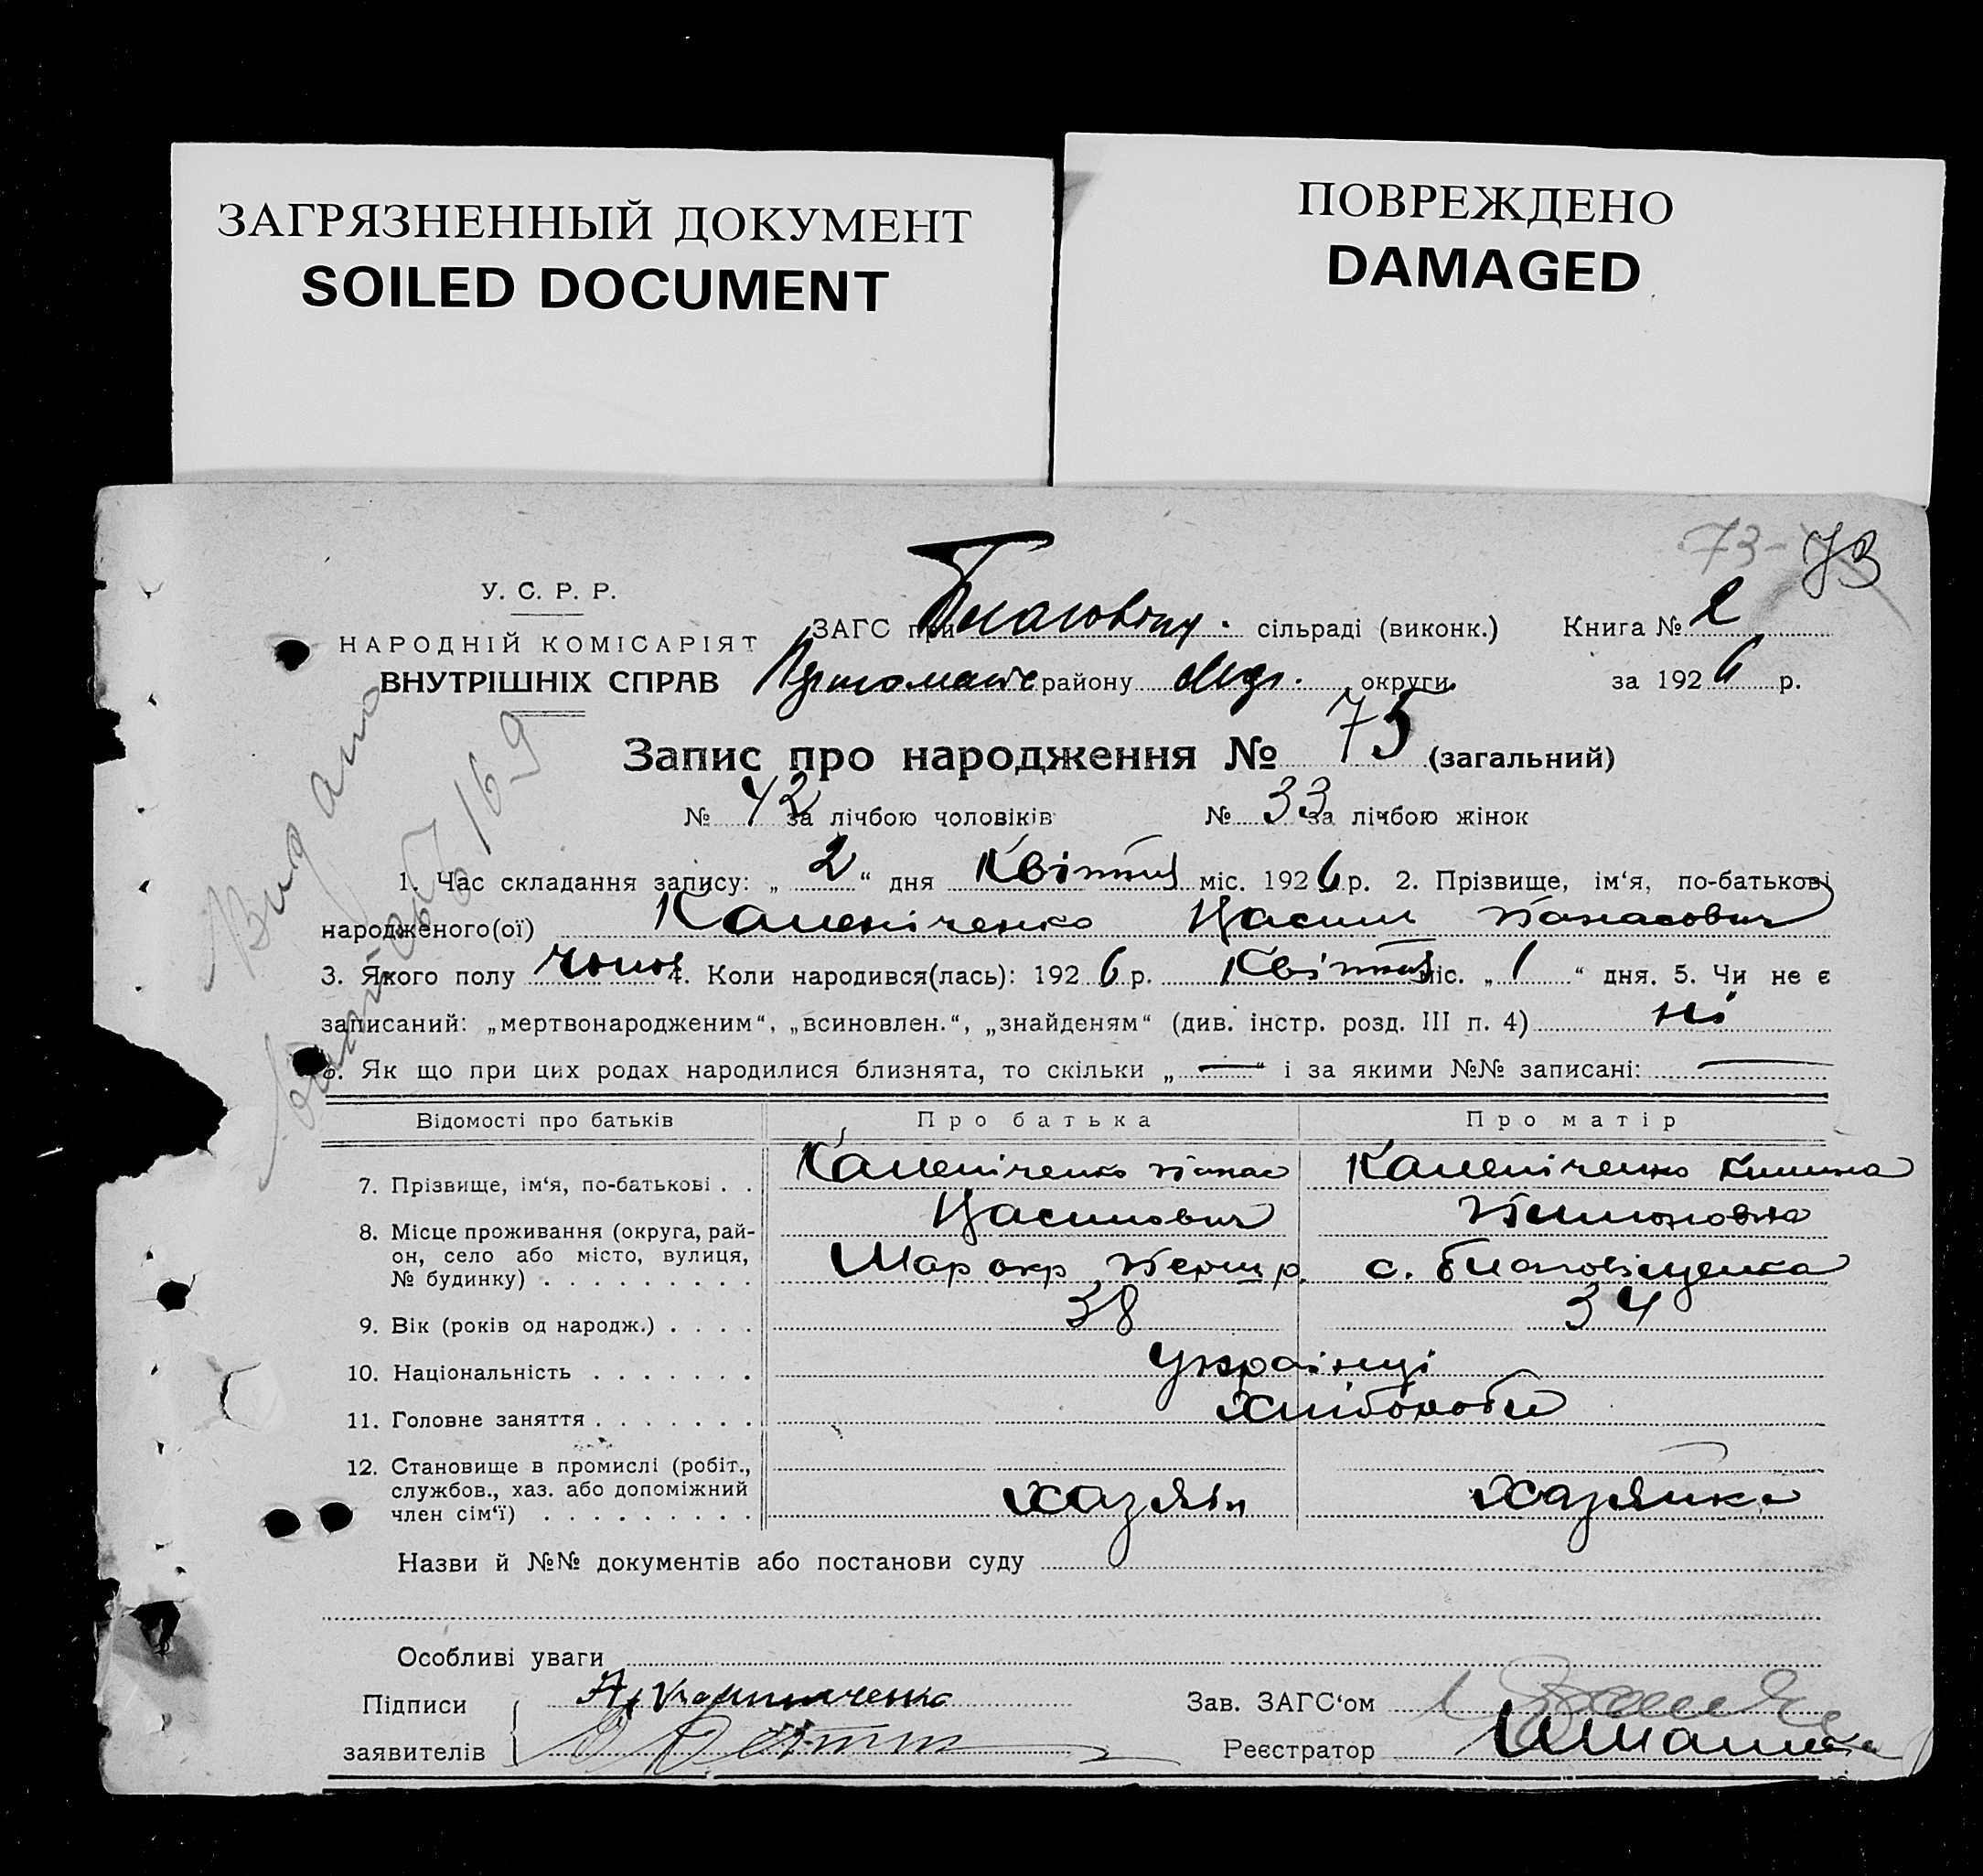 ЗАГРЯЗНЕННЫЙ ДОКУМЕНТ
SOILED DOCUMENT
ПОВРЕЖДЕНО
DAMAGED
73- 73
У. С. Р. Р.
НАРОДНІЙ КОМІСАРІЯТ
ВНУТРІШНІХ СПРАВ
ЗАГС при Благовіщ. сільраді (виконк.) Книга № 2
району округи за 1926 р.
Запис про народження № 75 (загальний)
№ 42 за лічбою чоловіків № 33 за лічбою жінок
1. Час складання запису: „ 2 “ дня Квітня міс. 1926 р. 2. Прізвище, ім‘я, по-батькові
народженого(ої) Панасович
3. Якого полу чолов 4. Коли народився(лась): 1926 р. Квітня міс. „ 1 “ дня. 5. Чи не є
записаний: „мертвонародженим“, „всиновлен.“, „знайденям“ (див. інстр. розд. III п. 4) ні
6. Як що при цих родах народилися близнята, то скільки „ — “ і за якими №№ записані: —
Відомості про батьків Про батька Про матір
7. Прізвище, ім‘я, по-батькові . . Панас
8. Місце проживання (округа, рай-
он, село або місто, вулиця,
№ будинку) . . . . . . . . . Мар окр Перш р. с. Благовіщенка
9. Вік (років од народж.) . . . . 38 34
10. Національність . . . . . . . українці
11. Головне заняття . . . . . . . хлібороби
12. Становище в промислі (робіт.,
службов., хаз. або допоміжний
член сім‘ї) . . . . . . . . . хазяїн хазяйка
Назви й №№ документів або постанови суду
Особливі уваги
Підписи Зав. ЗАГС‘ом
заявителів Реєстратор
Видано
169